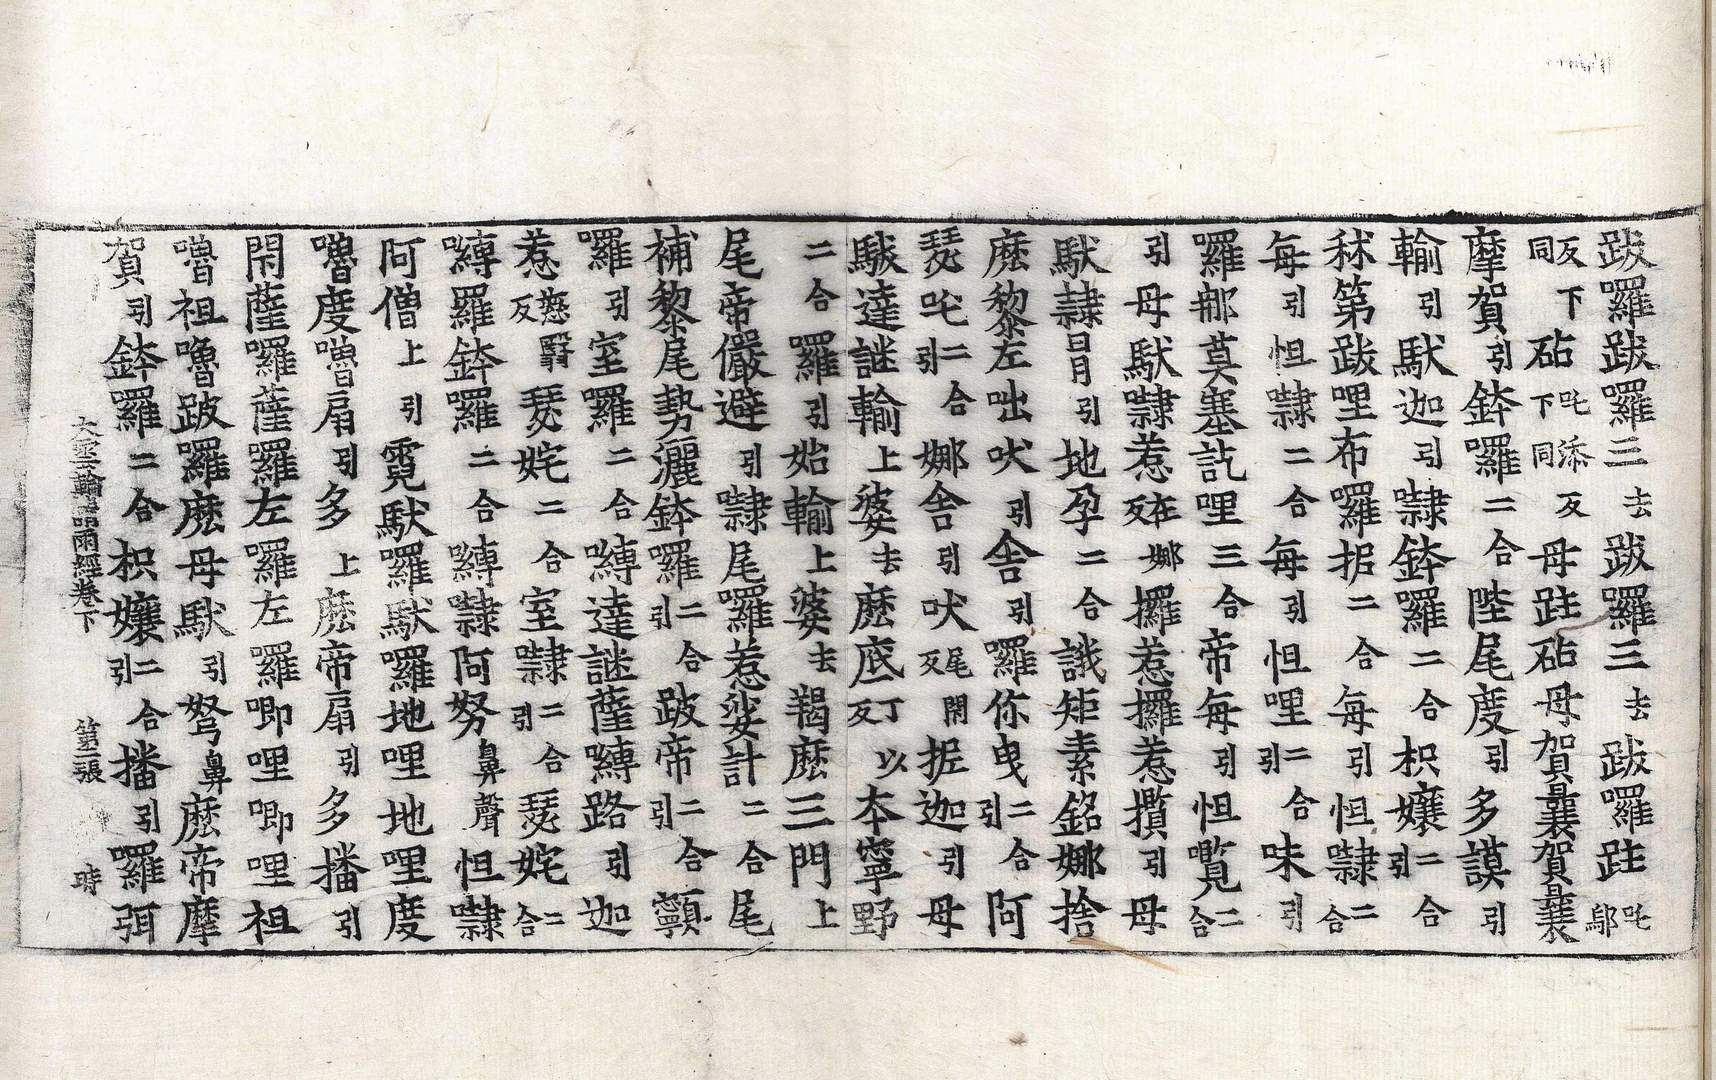 跋囉跋囉三去跋囉三去跋囉跓吒鄔
反下同砧吒添反下同母跓砧母賀曩賀曩
摩賀引鉢囉二合陛尾度引多謨引
輸引馱迦引㘑鉢囉二合枳孃二合引
秫第跋哩布囉抳二合每引怛㘑二合
每引怛㘑二合每引怛哩二合引味引
囉郍莫塞訖哩三合帝每引怛覽二合
引母馱㘑惹在娜反攞惹攞惹攢引母
馱㘑引地孕二合誐矩素銘娜捨
麽黎左咄吠引舍引囉你曳二合引阿
瑟吒二合引娜舍引吠尾閇反抳迦引母
馱達謎輸上婆去麽底丁以反本寧野
二合囉引始輸上婆去羯麽三門上
尾帝儼避引㘑尾囉惹娑計二合尾
補黎尾勢灑鉢囉二合引跛帝二合引顎
囉引室囉二合嚩達謎薩嚩路引迦
惹慈翳反瑟姹二合室㘑二合引瑟姹二合
嚩囉鉢囉二合嚩㘑阿努鼻聲怛㘑
阿僧上引霓馱囉馱囉地哩地哩度
嚕度嚕扇引多上麽帝扇引多播引
閇薩囉薩囉左囉左囉唧哩唧哩祖
嚕祖嚕跛囉麽母馱引弩鼻麽帝摩
賀引鉢囉二合枳孃二合引播引囉弭
大雲輪請雨經卷下 第二張 時